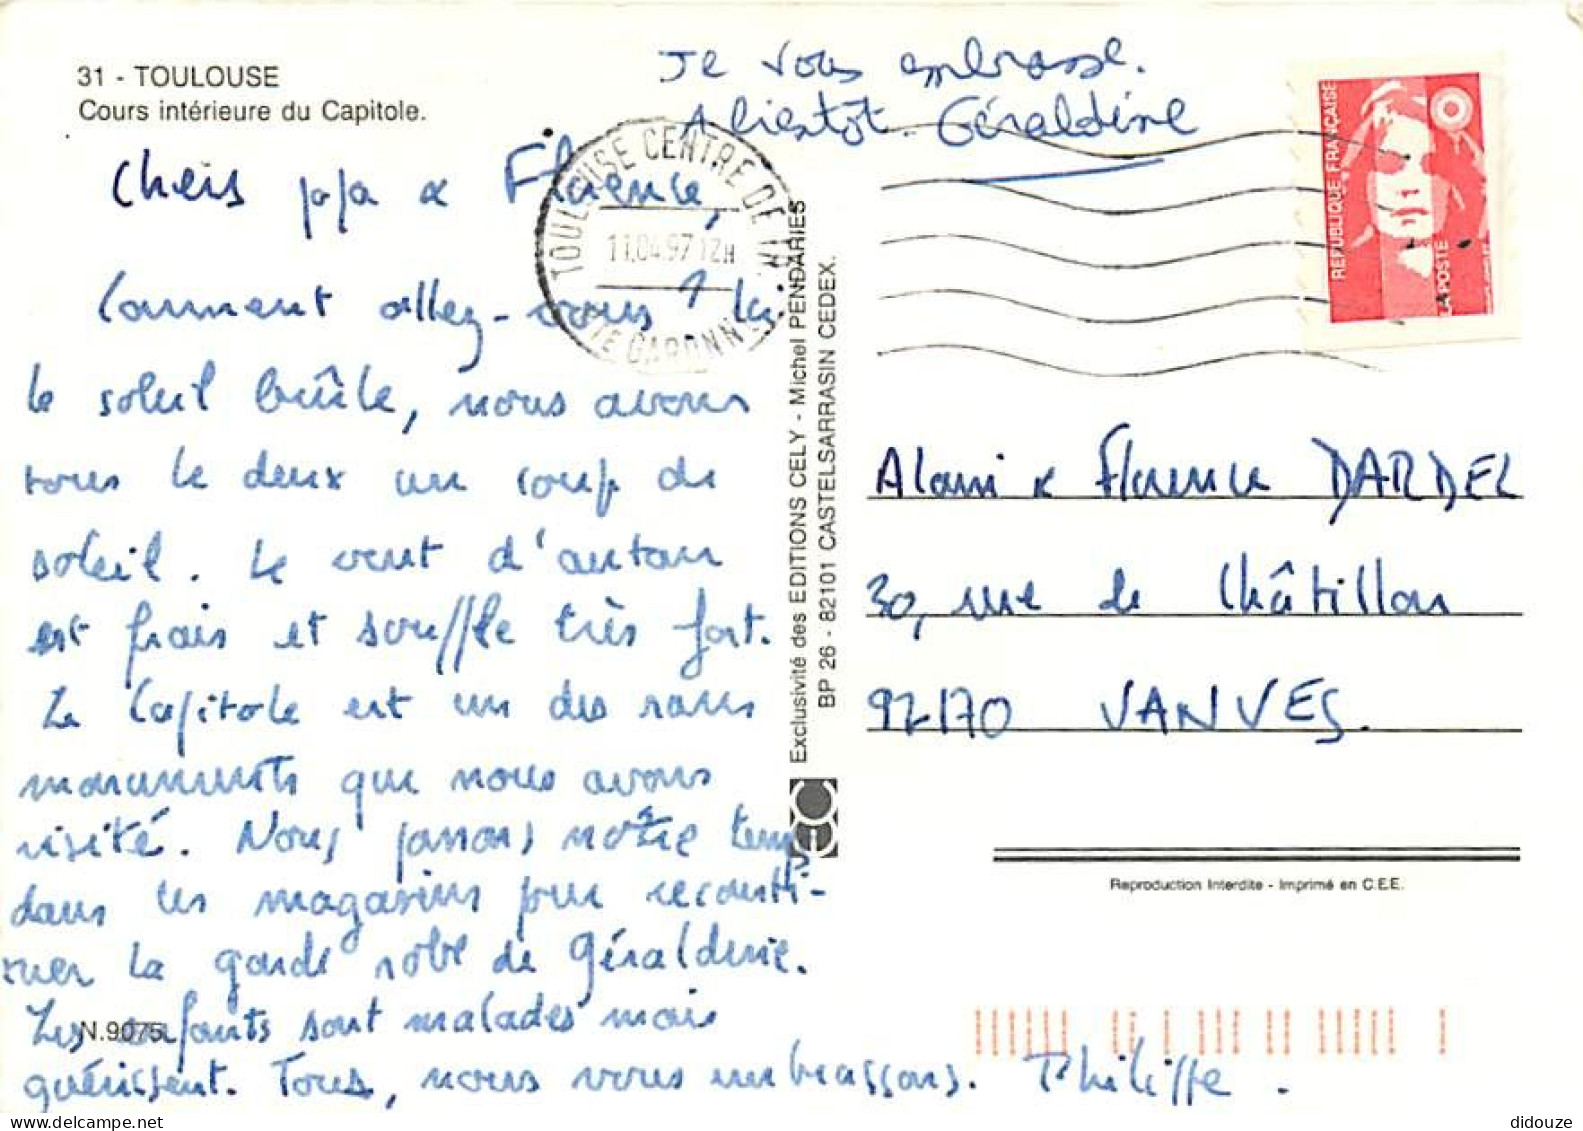 31 - TOULOUSE
Cours intérieure du Capitole.
Je vous embrasse.
A bientôt. Géraldine
Chers papa & Florence,
TOULOUSE CENTRE DE TRI
11.04.97 12H
HTE GARONNE
REPUBLIQUE FRANCAISE
LA POSTE
Comment allez-vous ? Ici
le soleil brûle, nous avons
tous les deux un coup de
soleil. Le vent d'autan
est frais et souffle très fort.
Le Capitole est un des rares
monuments que nous avons
visité. Nous passons notre temps
dans les magasins pour reconsti-
tuer la garde robe de Géraldine.
Les enfants sont malades mais
guérissent. Tous, nous vous embrassons. Philippe.
N.9075.
Exclusivité des EDITIONS CELY - Michel PENDARIES
BP 26 - 82101 CASTELSARRASIN CEDEX.
Alain & Florence DARDEL
30, rue de Châtillon
92170 VANVES.
Reproduction Interdite - Imprimé en C.E.E.
didouze